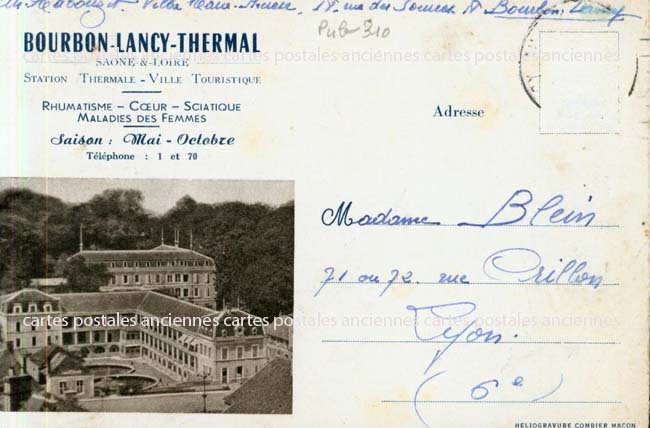 Villa 19 rue des Sources à Bourbon-Lancy
Pub 310
BOURBON-LANCY-THERMAL
SAONE-&-LOIRE
STATION THERMALE - VILLE TOURISTIQUE
RHUMATISME - CŒUR - SCIATIQUE
MALADIES DES FEMMES
Saison : Mai - Octobre
Téléphone : 1 et 70
Adresse
Madame Blein
71 ou 72 rue Crillon
Lyon.
(6e)
cartes postales anciennes cartes postales anciennes cartes postales anciennes
HELIOGRAVURE COMBIER MACON